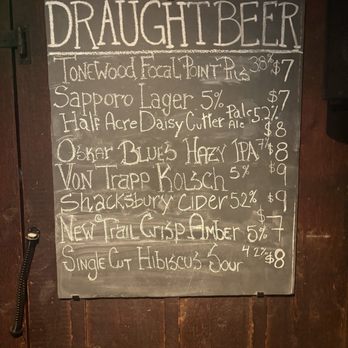 DRAUGHT BEER
TONEWOOD FOCAL POINT PILS 3.8% $7
SAPPORO LAGER 5% $7
HALF ACRE DAISY CUTTER PALE ALE 5.2% $8
OSKAR BLUES HAZY IPA 7% $8
VON TRAPP KOLSCH 5% $9
SHACKSBURY CIDER 5.2% $9
NEW TRAIL CRISP AMBER 5% $7
SINGLE CUT HIBISCUS SOUR 4.2% $8